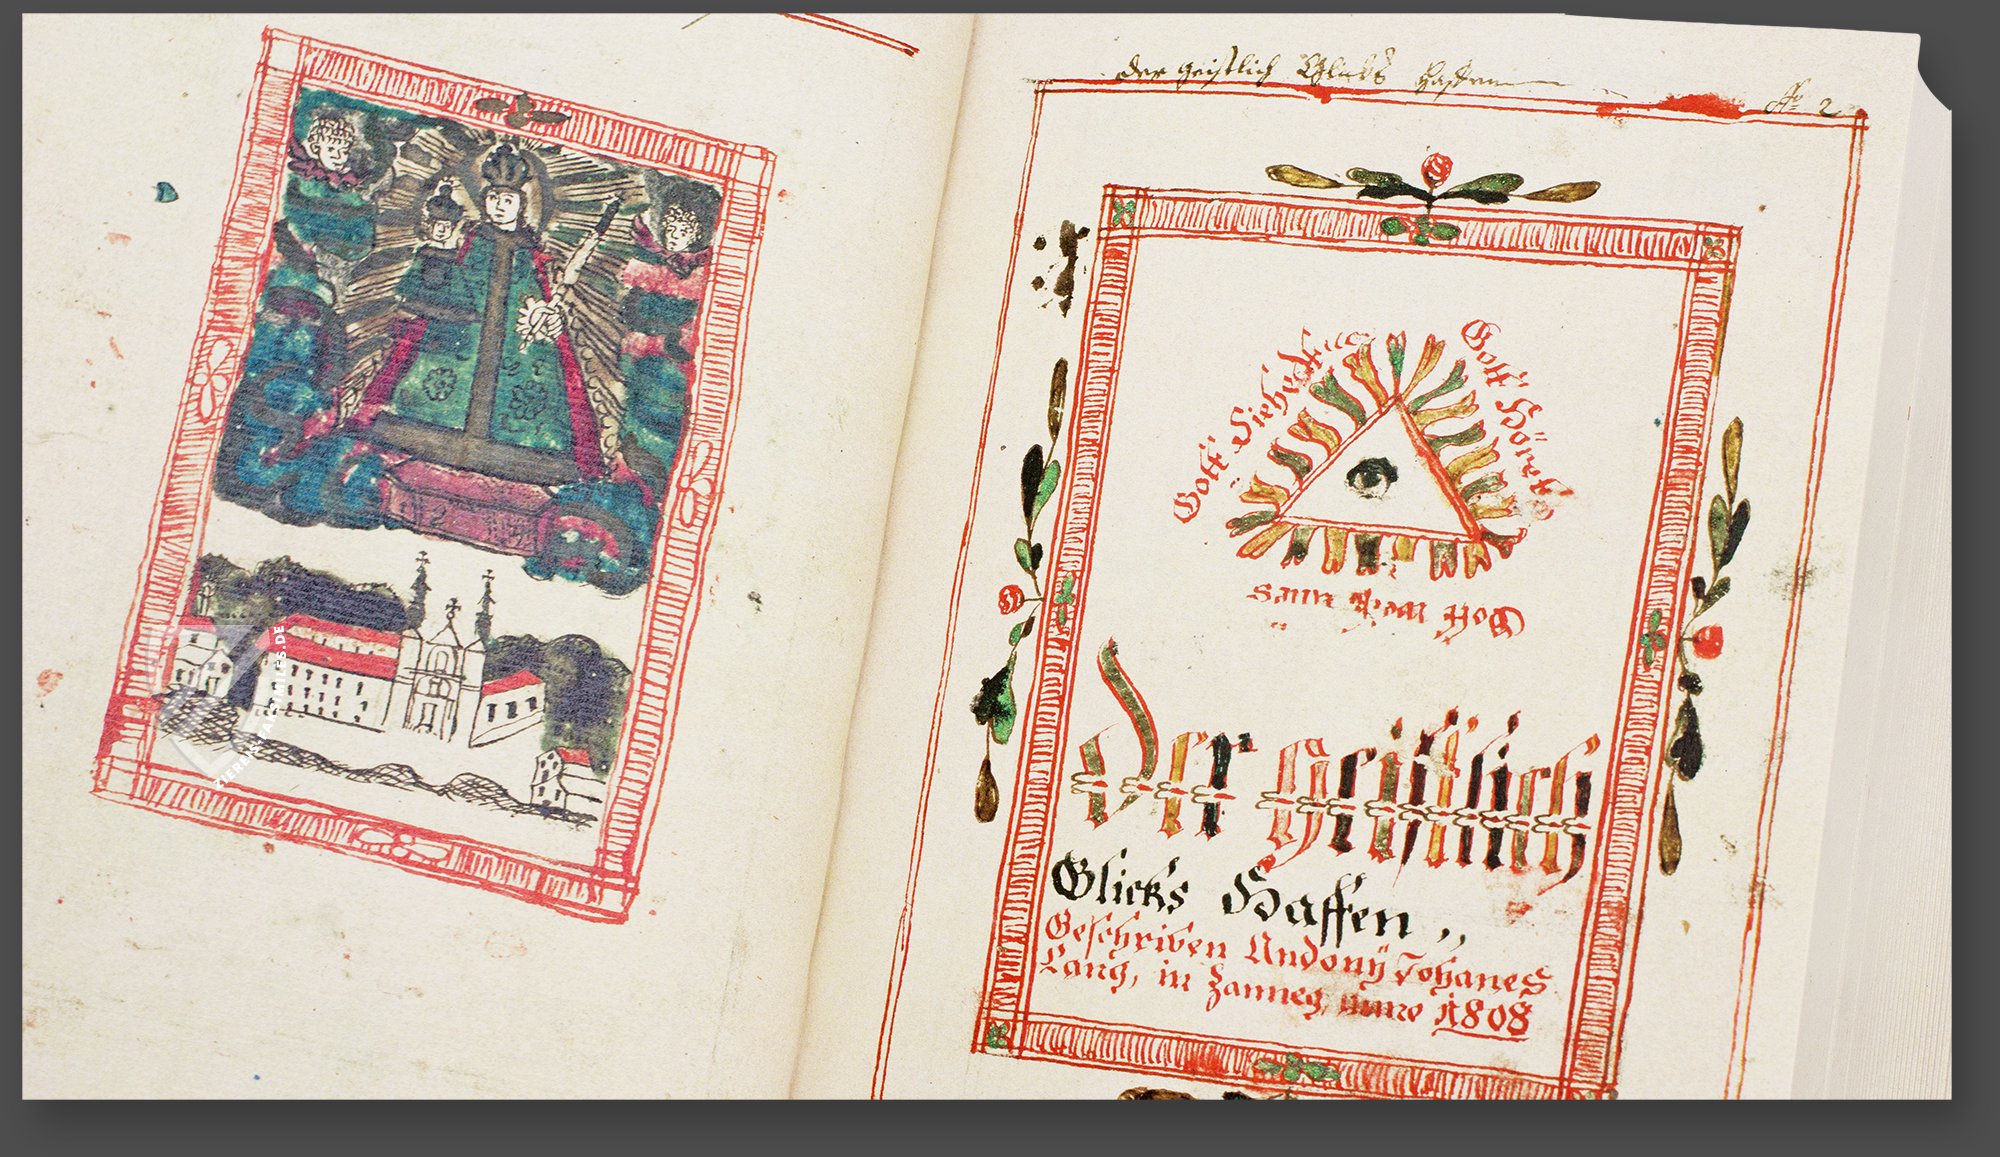 der geistlich Glicks Haffen
No 2
Gott Siehest
Gott Höret
Gott
Der geistlich
Glicks Haffen „
Geschriben Andonÿ Johanes
Lang, in Zanneg, anno 1808
ZIEREIS-FAKSIMILES.DE